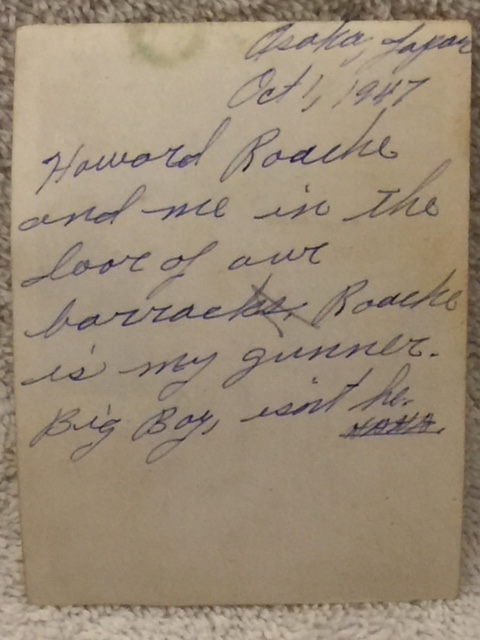 Osaka, Japan
Oct 1, 1947
Howard Roache
and me in the
door of our
barracks. Roache
is my gunner.
Big Boy, isn't he.
HAHA.